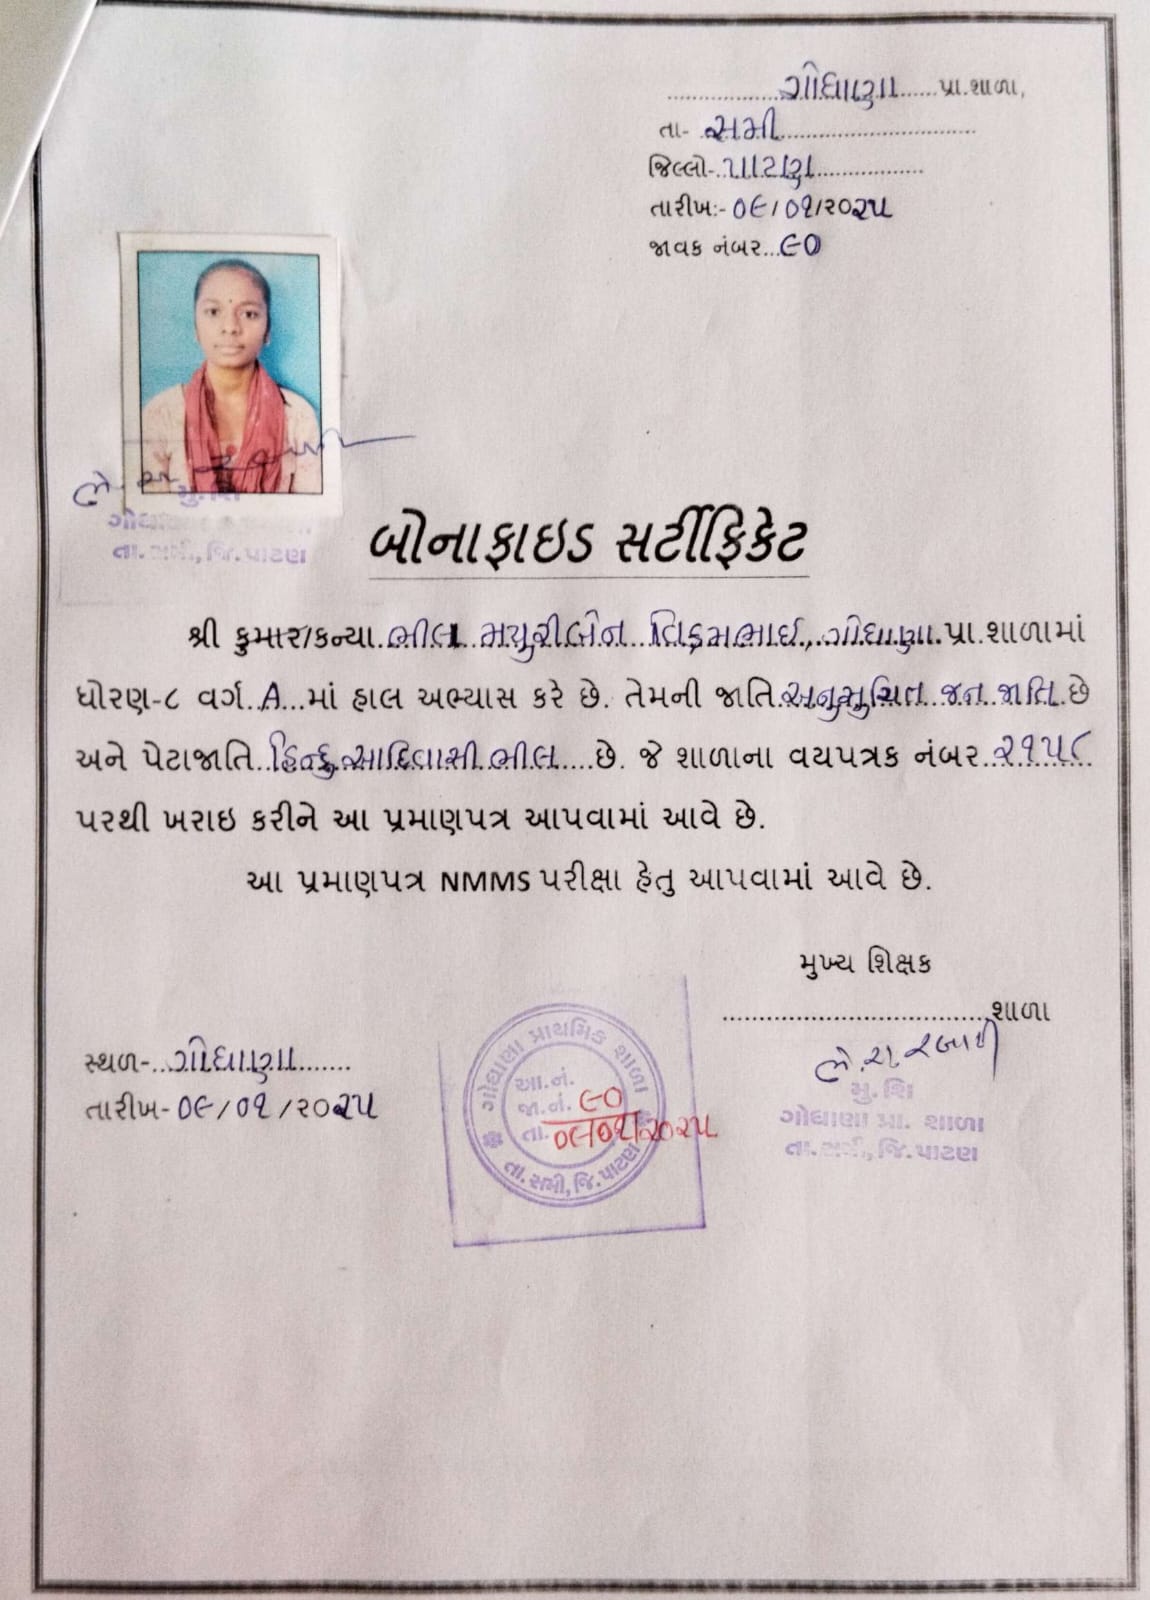 ગોધાણા પ્રા.શાળા,
તા- સમી
જિલ્લો- પાટણ
તારીખ:- ૦૯/૦૧/૨૦૨૫
જાવક નંબર...૯૦
મુ.શિ
તા. સમી, જિ.પાટણ
બોનાફાઇડ સર્ટીફિકેટ
શ્રી કુમાર/કન્યા ભીલ મયુરીબેન વિક્રમભાઈ, ગોધાણા પ્રા.શાળામાં
ધોરણ-૮ વર્ગ A માં હાલ અભ્યાસ કરે છે. તેમની જાતિ અનુસુચિત જન જાતિ છે
અને પેટાજાતિ હિન્દુ આદિવાસી ભીલ છે. જે શાળાના વયપત્રક નંબર ૨૧૫૮
પરથી ખરાઇ કરીને આ પ્રમાણપત્ર આપવામાં આવે છે.
આ પ્રમાણપત્ર NMMS પરીક્ષા હેતુ આપવામાં આવે છે.
મુખ્ય શિક્ષક
શાળા
મુ. શિ
ગોધાણા પ્રા. શાળા
તા. સમી, જિ.પાટણ
સ્થળ- ગોધાણા
તારીખ- ૦૯/૦૧/૨૦૨૫
ગોધાણા પ્રાથમિક શાળા
આ.નં.
જા.નં. ૯૦
તા. ૦૯/૦૧/૨૦૨૫
તા. સમી, જિ. પાટણ